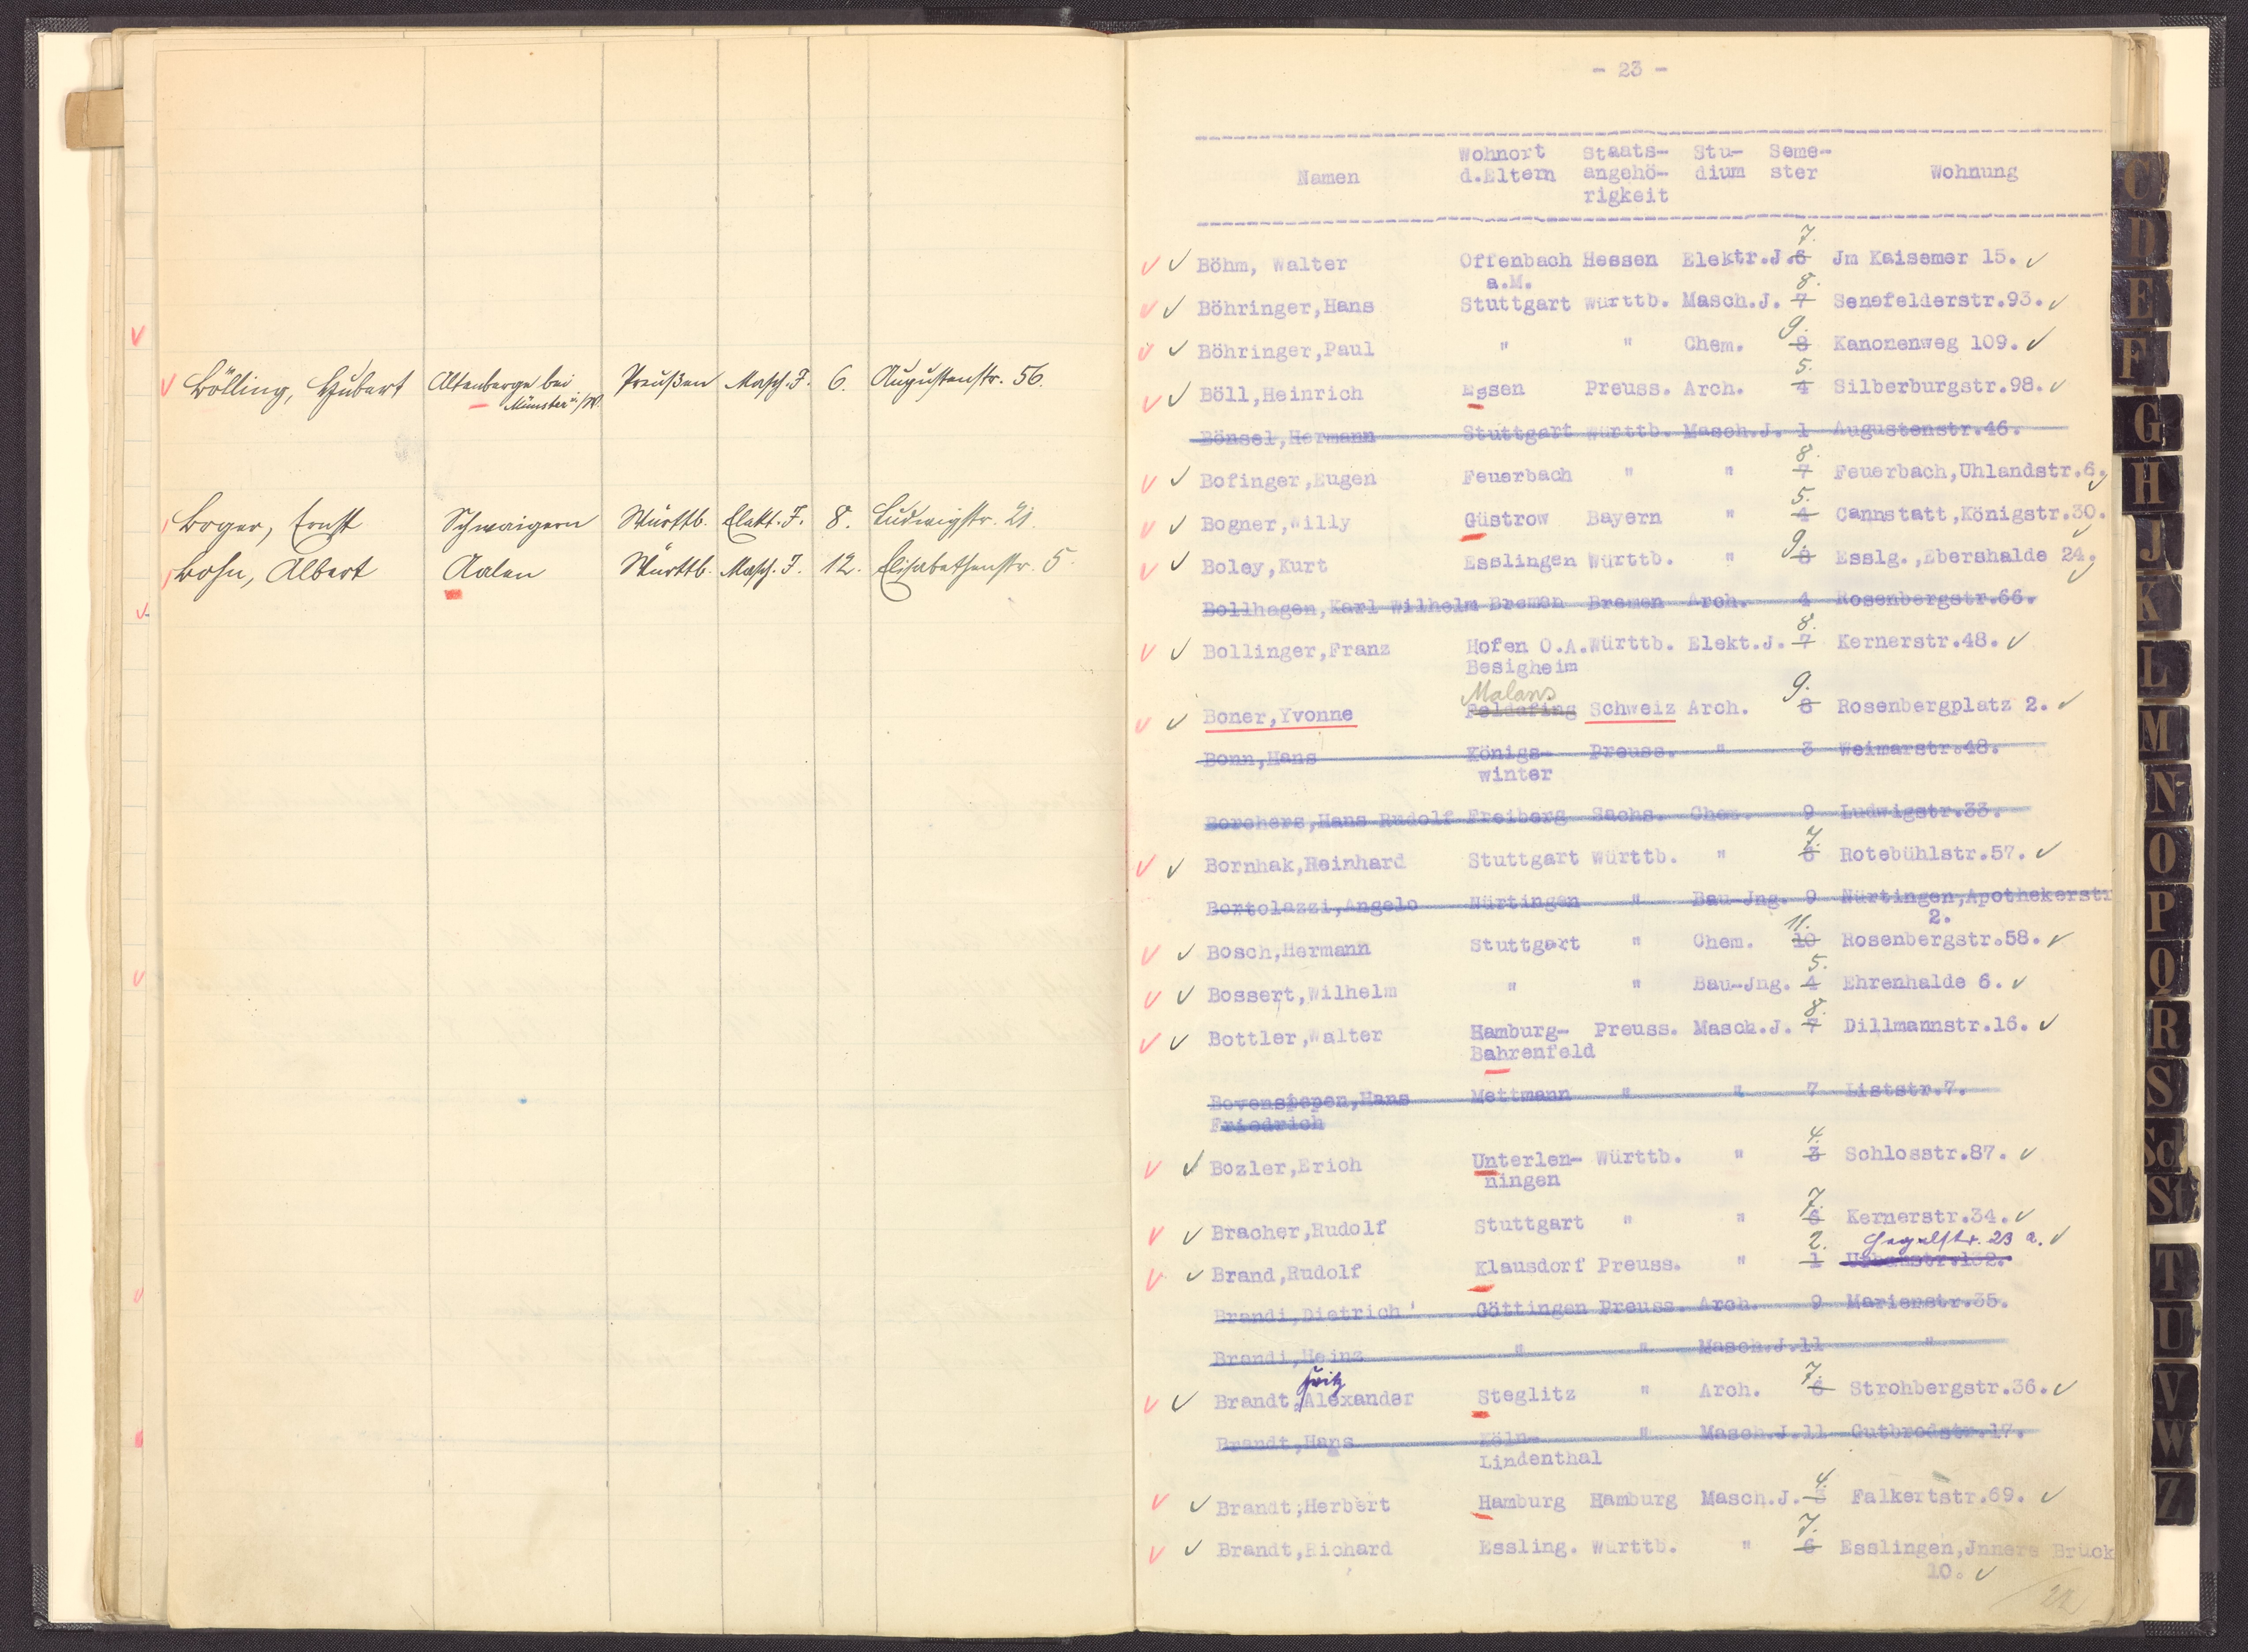 Bölling, Hubert Altenberge bei Preußen Masch. J. 6. Augustenstr. 56.
Münster i/W.
Boger, Ernst Schwaigern Württb. Elekt. J. 8. Ludwigstr. 21.
Bohn, Albert Aalen Württb. Masch. J. 12. Elisabethenstr. 5.
- 23 -
Wohnort Staats- Stu- Seme-
Namen d.Eltern angehö- dium ster Wohnung
rigkeit
7.
Böhm, Walter Offenbach Hessen Elektr.J.6 Jm Kaisemer 15.
a.M. 8.
Böhringer,Hans Stuttgart Württb. Masch.J. 7 Senefelderstr.93.
9.
Böhringer,Paul " " Chem. 8 Kanonenweg 109.
5.
Böll,Heinrich Essen Preuss. Arch. 4 Silberburgstr.98.
Bönsel,Hermann Stuttgart Württb. Masch.J. 1 Augustenstr.46.
8.
Bofinger,Eugen Feuerbach " " 7 Feuerbach,Uhlandstr.6.
5.
Bogner,Willy Güstrow Bayern " 4 Cannstatt,Königstr.30.
9.
Boley,Kurt Esslingen Württb. " 8 Esslg.,Ebershalde 24.
Bollhagen,Karl Wilhelm Bremen Bremen Arch. 4 Rosenbergstr.66.
8.
Bollinger,Franz Hofen O.A.Württb. Elekt.J. 7 Kernerstr.48.
Besigheim
Malans 9.
Boner,Yvonne Feldafing Schweiz Arch. 8 Rosenbergplatz 2.
Bonn,Hans Königs- Preuss. " 3 Weimarstr.48.
winter
Borchers,Hans Rudolf Freiberg Sachs. Chem. 9 Ludwigstr.33.
7.
Bornhak,Reinhard Stuttgart Württb. " 6 Rotebühlstr.57.
Bortolazzi,Angelo Nürtingen " Bau-Jng. 9 Nürtingen,Apothekerstr
11. 2.
Bosch,Hermann Stuttgart " Chem. 10 Rosenbergstr.58.
5.
Bossert,Wilhelm " " Bau-Jng. 4 Ehrenhalde 6.
8.
Bottler,Walter Hamburg- Preuss. Masch.J. 7 Dillmannstr.16.
Bahrenfeld
Bovensiepen,Hans Mettmann " " 7 Liststr.7.
Friedrich
4.
Bozler,Erich Unterlen- Württb. " 3 Schlosstr.87.
ningen
7.
Bracher,Rudolf Stuttgart " " 6 Kernerstr.34.
2. Hegelstr. 23 a.
Brand,Rudolf Klausdorf Preuss. " 1 Urbanstr.132.
Brandi,Dietrich Göttingen Preuss. Arch. 9 Marienstr.35.
Brandi,Heinz " " Masch.J.11 "
Fritz 7.
Brandt,Alexander Steglitz " Arch. 6 Strohbergstr.36.
Brandt,Hans Köln- " Masch.J.11 Gutbrodstr.17.
Lindenthal
4.
Brandt,Herbert Hamburg Hamburg Masch.J. 3 Falkertstr.69.
7.
Brandt,Richard Essling. Württb. " 6 Esslingen,Jnnere Brück
10.
22
C
D
E
F
G
H
J
K
L
M
N
O
P
Q
R
S
Sch
St
T
U
V
W
Z